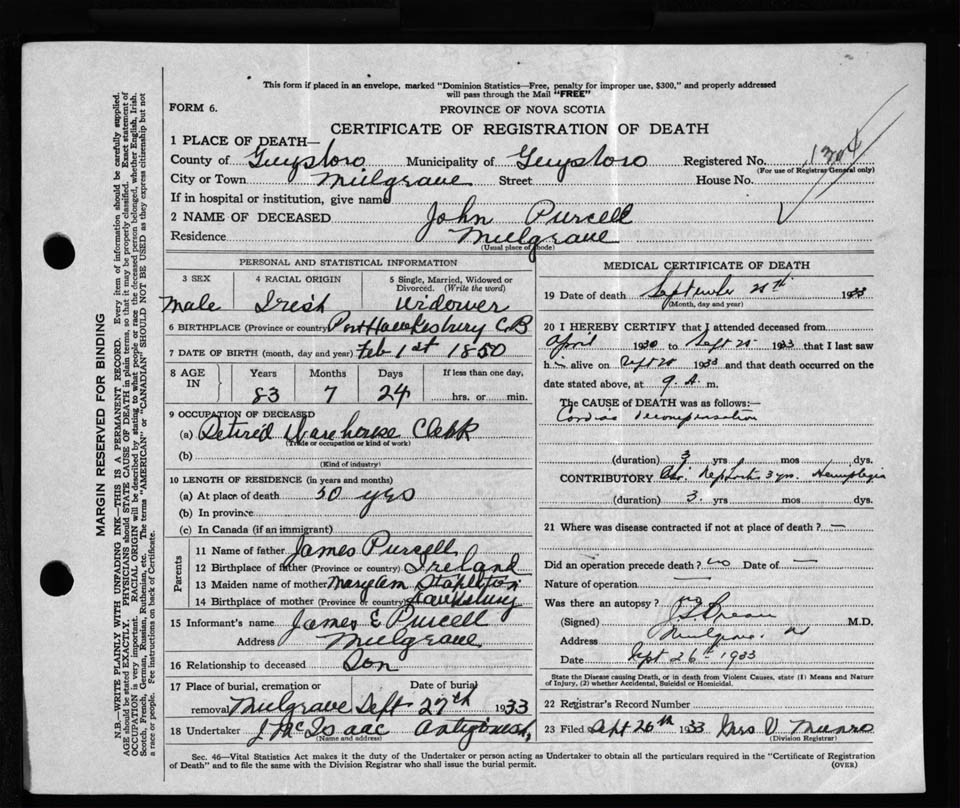 This form if placed in an envelope, marked "Dominion Statistics—Free, penalty for improper use, $300," and properly addressed
will pass through the Mail "FREE"
FORM 6.
PROVINCE OF NOVA SCOTIA
CERTIFICATE OF REGISTRATION OF DEATH
1 PLACE OF DEATH—
County of Guysboro Municipality of Guysboro Registered No. 1304
(For use of Registrar General only)
City or Town Mulgrave Street House No.
If in hospital or institution, give name
2 NAME OF DECEASED John Purcell
Residence Mulgrave
(Usual place of abode)
PERSONAL AND STATISTICAL INFORMATION
3 SEX 4 RACIAL ORIGIN 5 Single, Married, Widowed or Divorced. (Write the word)
Male Irish Widower
6 BIRTHPLACE (Province or country) Port Hawkesbury C.B
7 DATE OF BIRTH (month, day and year) Feb 1st 1850
8 AGE IN Years Months Days If less than one day,
83 7 24 hrs. or min.
9 OCCUPATION OF DECEASED
(a) Retired Warehouse Clerk
(Trade or occupation or kind of work)
(b)
(Kind of industry)
10 LENGTH OF RESIDENCE (in years and months)
(a) At place of death 30 yrs
(b) In province
(c) In Canada (if an immigrant)
Parents
11 Name of father James Purcell
12 Birthplace of father (Province or country) Ireland
13 Maiden name of mother Mary Ann Stapleton
14 Birthplace of mother (Province or country) Hawksbury
15 Informant's name James E Purcell
Address Mulgrave
16 Relationship to deceased Son
17 Place of burial, cremation or removal Date of burial
Mulgrave Sept 27th 1933
18 Undertaker J McIsaac Antigonish
(Name and address)
MEDICAL CERTIFICATE OF DEATH
19 Date of death September 1933
(Month, day and year)
20 I HEREBY CERTIFY that I attended deceased from
April 1930 to Sept 25 1933 that I last saw
h alive on Sept 1933 and that death occurred on the
date stated above, at 9 A. m.
The CAUSE of DEATH was as follows:—
Cardiac decompensation
(duration) 3 yrs mos dys.
CONTRIBUTORY Chr. Nephritis 3 yrs. Hemiplegia
(duration) 3. yrs mos. dys.
21 Where was disease contracted if not at place of death? —
Did an operation precede death? no Date of —
Nature of operation —
Was there an autopsy? no
(Signed) M.D.
Address Mulgrave. NS
Date Sept 26th 1933
State the Disease causing Death, or in death from Violent Causes, state (1) Means and Nature
of Injury, (2) whether Accidental, Suicidal or Homicidal.
22 Registrar's Record Number
23 Filed Sept 26th 1933 Mrs D. Munro
(Division Registrar)
Sec. 46—Vital Statistics Act makes it the duty of the Undertaker or person acting as Undertaker to obtain all the particulars required in the "Certificate of Registration
of Death" and to file same with the Division Registrar who shall issue the burial permit.
(OVER)
MARGIN RESERVED FOR BINDING
N.B.—WRITE PLAINLY WITH UNFADING INK—THIS IS A PERMANENT RECORD. Every item of information should be carefully supplied.
AGE should be stated EXACTLY. PHYSICIANS should STATE CAUSE OF DEATH in plain terms, so that it may be properly classified. Exact statement of
OCCUPATION is very important. RACIAL ORIGIN will be described by stating to what people or race the deceased person belonged, whether English, Irish,
Scotch, French, German, Russian, Ruthenian, etc. The terms "AMERICAN" or "CANADIAN" SHOULD NOT BE USED as they express citizenship but not
a race or people. For instructions on back of Certificate.